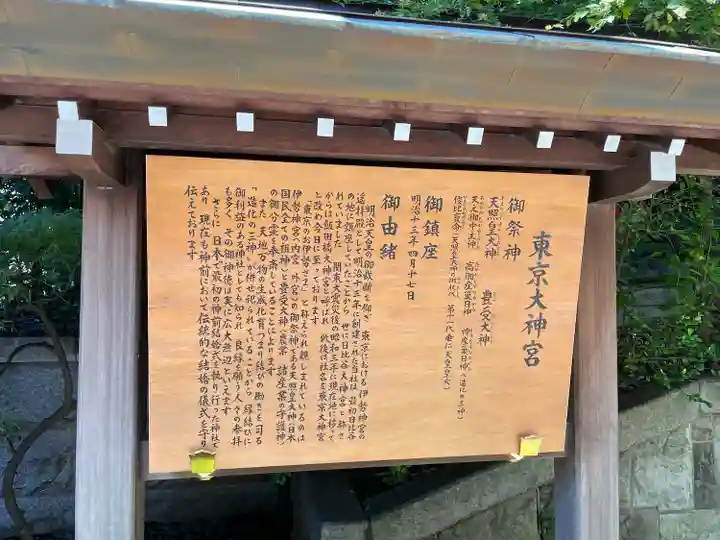 東京大神宮
御祭神
天照皇大神　豊受大神
天之御中主神　高御産巣日神　神産巣日神(造化の三神)
倭比賣命
御鎮座
明治十三年四月十七日
御由緒
明治天皇の御裁断を仰ぎ 東京における 伊勢神宮の
遥拝殿として明治十三年に創建された当社は 最初日比谷
の地に鎮座していたことから 世に日比谷大神宮と称さ
れていました 関東大震災後の昭和三年に現在地に移って
からは飯田橋大神宮と呼ばれ 戦後は社名を東京大神宮
と改め今日に至っております
「東京のお伊勢さま」と称され親しまれているのは
伊勢神宮(内宮・外宮)の御祭神である天照皇大神(日本
国民全ての祖神)と豊受大神(農業・諸産業の守護神)
の御分霊を奉斎していることによります
また 天地万物の生成化育(つまり結びの働き)を司る
「造化の三神」が併せ祀られていることから 縁結びに
御利益のある神社としても知られ 良縁を願う人々の参拝
も多く その御神徳は実に広大無辺といえます
さらに 日本で最初の神前結婚式を執り行った神社で
あり 現在も神前において伝統的な結婚の儀式を守り
伝えております